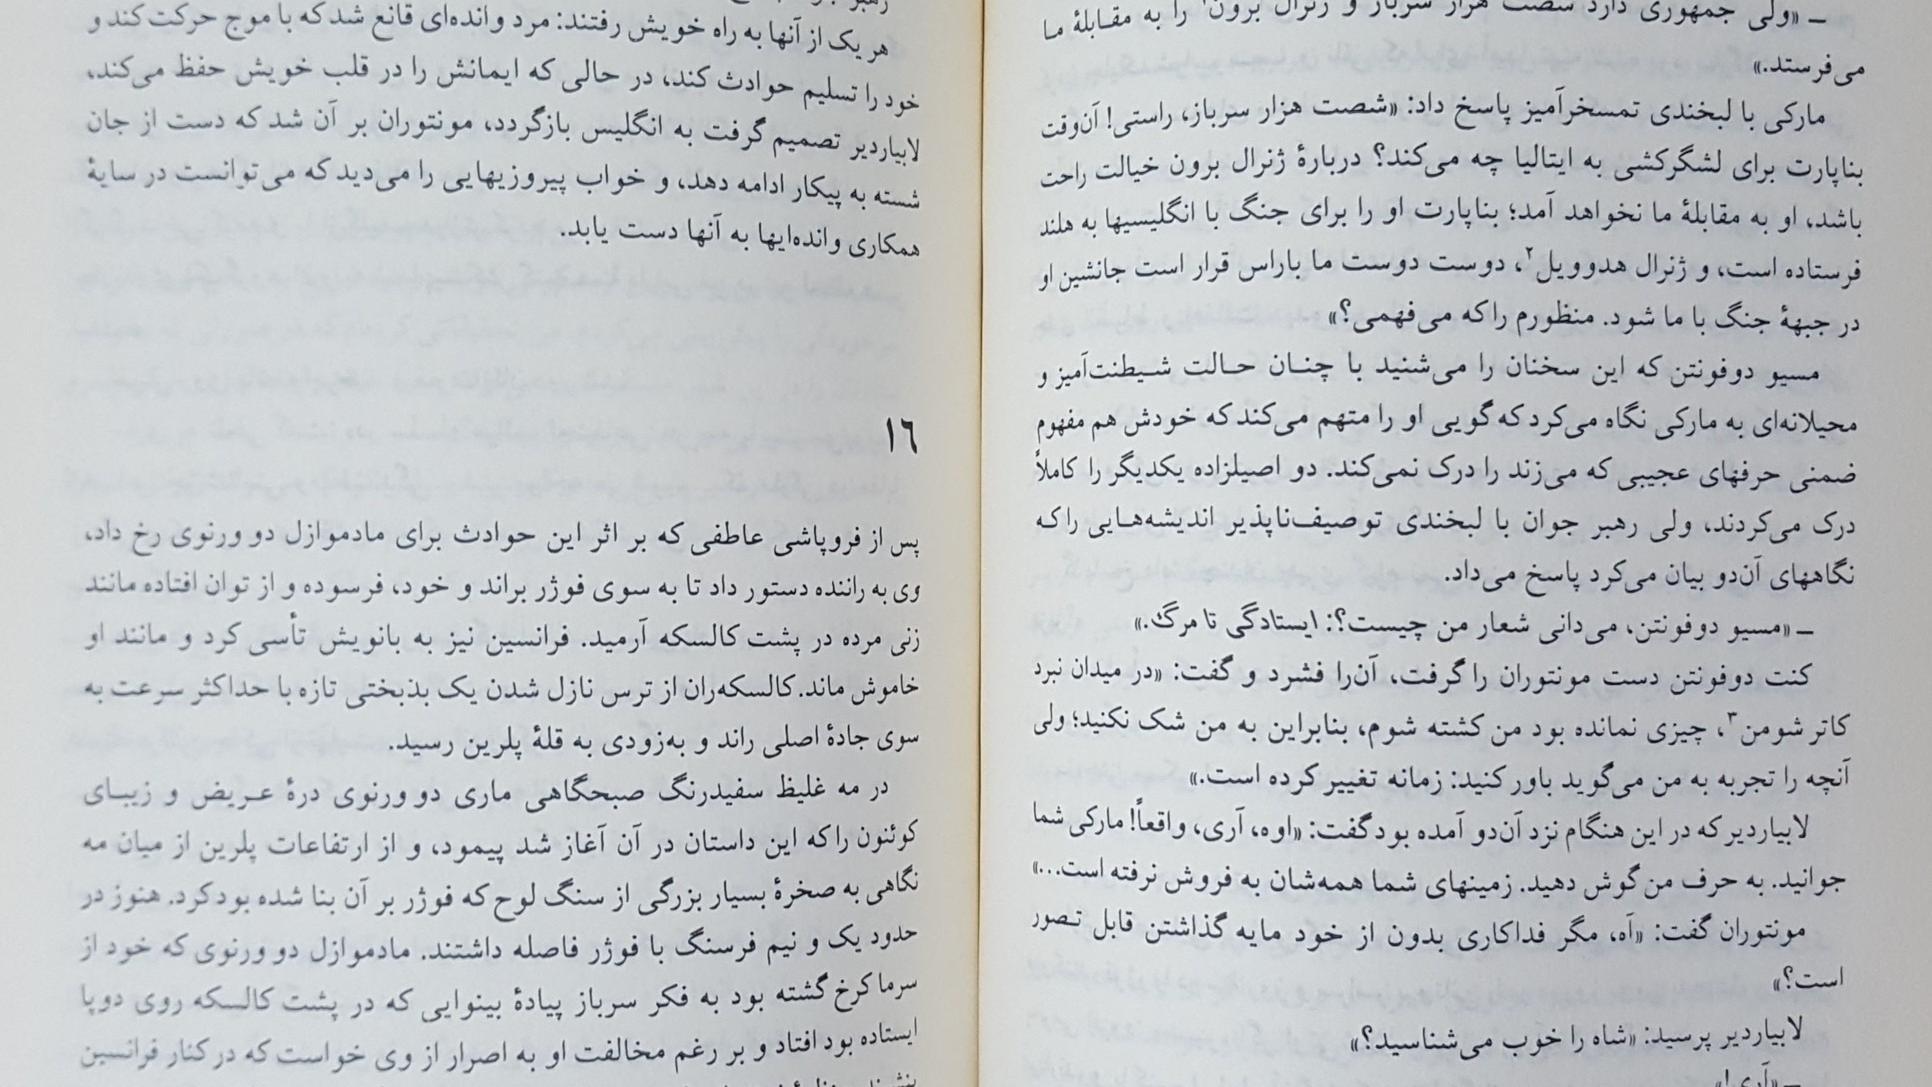 ـ «ولی جمهوری دارد شصت هزار سرباز و ژنرال برون۱ را به مقابلهٔ ما
می‌فرستد.»
مارکی با لبخندی تمسخرآمیز پاسخ داد: «شصت هزار سرباز، راستی! آن‌وقت
بناپارت برای لشگرکشی به ایتالیا چه می‌کند؟ دربارهٔ ژنرال برون خیالت راحت
باشد، او به مقابلهٔ ما نخواهد آمد؛ بناپارت او را برای جنگ با انگلیسیها به هلند
فرستاده است، و ژنرال هدوویل۲، دوست دوست ما باراس قرار است جانشین او
در جبههٔ جنگ با ما شود. منظورم را که می‌فهمی؟»
مسیو دوفونتن که این سخنان را می‌شنید با چنان حالت شیطنت‌آمیز و
محیلانه‌ای به مارکی نگاه می‌کرد که گویی او را متهم می‌کند که خودش هم مفهوم
ضمنی حرفهای عجیبی که می‌زند را درک نمی‌کند. دو اصیلزاده یکدیگر را کاملاً
درک می‌کردند، ولی رهبر جوان با لبخندی توصیف‌ناپذیر اندیشه‌هایی را که
نگاههای آن‌دو بیان می‌کرد پاسخ می‌داد.
ـ «مسیو دوفونتن، می‌دانی شعار من چیست؟: ایستادگی تا مرگ.»
کنت دوفونتن دست مونتوران را گرفت، آن‌را فشرد و گفت: «در میدان نبرد
کاتر شومن۳، چیزی نمانده بود من کشته شوم، بنابراین به من شک نکنید؛ ولی
آنچه را تجربه به من می‌گوید باور کنید: زمانه تغییر کرده است.»
لابیاردیر که در این هنگام نزد آن‌دو آمده بود گفت: «اوه، آری، واقعاً! مارکی شما
جوانید. به حرف من گوش دهید. زمینهای شما همه‌شان به فروش نرفته است...»
مونتوران گفت: «آه، مگر فداکاری بدون از خود مایه گذاشتن قابل تصور
است؟»
لابیاردیر پرسید: «شاه را خوب می‌شناسید؟»
ـ «آری!»
هر یک از آنها به راه خویش رفتند: مرد وانده‌ای قانع شد که با موج حرکت کند و
خود را تسلیم حوادث کند، در حالی که ایمانش را در قلب خویش حفظ می‌کند،
لابیاردیر تصمیم گرفت به انگلیس بازگردد، مونتوران بر آن شد که دست از جان
شسته به پیکار ادامه دهد، و خواب پیروزیهایی را می‌دید که می‌توانست در سایهٔ
همکاری وانده‌ایها به آنها دست یابد.
۱۶
پس از فروپاشی عاطفی که بر اثر این حوادث برای مادموازل دو ورنوی رخ داد،
وی به راننده دستور داد تا به سوی فوژر براند و خود، فرسوده و از توان افتاده مانند
زنی مرده در پشت کالسکه آرمید. فرانسین نیز به بانویش تأسی کرد و مانند او
خاموش ماند. کالسکه‌ران از ترس نازل شدن یک بدبختی تازه با حداکثر سرعت به
سوی جادهٔ اصلی راند و به‌زودی به قلهٔ پلرین رسید.
در مه غلیظ سفیدرنگ صبحگاهی ماری دو ورنوی درهٔ عریض و زیبای
کوئنون را که این داستان در آن آغاز شد پیمود، و از ارتفاعات پلرین از میان مه
نگاهی به صخرهٔ بسیار بزرگی از سنگ لوح که فوژر بر آن بنا شده بود کرد. هنوز در
حدود یک و نیم فرسنگ با فوژر فاصله داشتند. مادموازل دو ورنوی که خود از
سرما کرخ گشته بود به فکر سرباز پیادهٔ بینوایی که در پشت کالسکه روی دوپا
ایستاده بود افتاد و بر رغم مخالفت او به اصرار از وی خواست که در کنار فرانسین